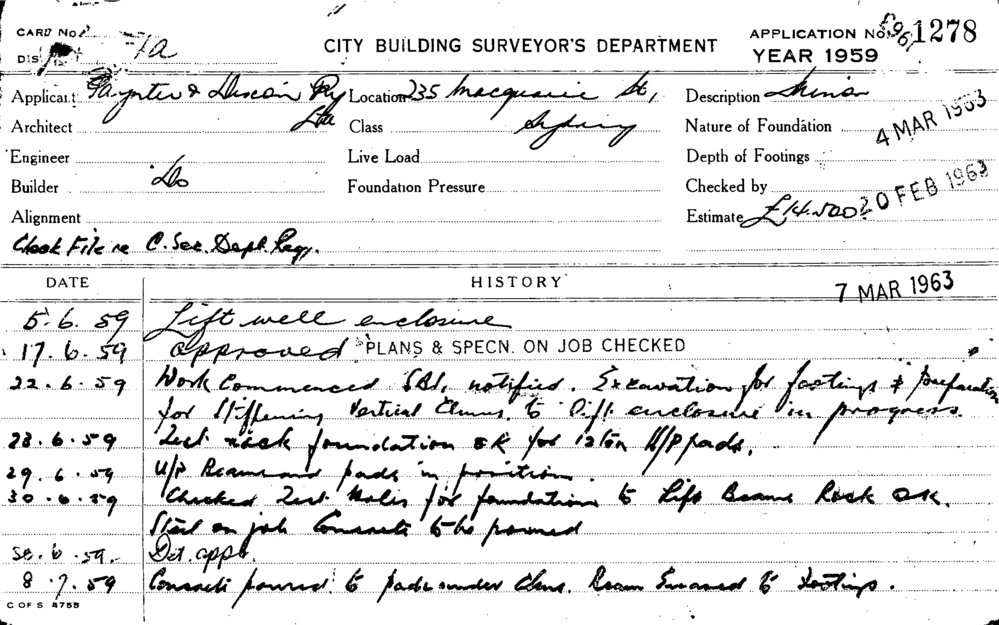 CARD No.
DIS 1a
CITY BUILDING SURVEYOR'S DEPARTMENT
APPLICATION No. 1278
1963
YEAR 1959
Applicant Paynter & Dixon Pty Ltd
Location 235 Macquarie St, Sydney
Description Minor
Architect
Class
Nature of Foundation
4 MAR 1963
Engineer
Live Load
Depth of Footings
Builder Do
Foundation Pressure
Checked by
20 FEB 1963
Alignment
Estimate £14.500
Check File re C. See. Dept. Reqs.
DATE HISTORY
7 MAR 1963
5.6.59 Lift well enclosure
17.6.59 approved PLANS & SPECN. ON JOB CHECKED
22.6.59 Work Commenced notified. Excavation for footings & preparation
for Stiffening Vertical Clmns. to Lift enclosure in progress.
23.6.59 Test rock foundation OK for 12 ton U/P pads.
29.6.59 U/P Beams and pads in position.
30.6.59 Checked Test Holes for foundation to Lift Beams Rock OK.
Steel on job Concrete to be poured
.6.59. Det. appr.
8.7.59 Concrete poured to pads under Clmns. Beam Encased to Footings.
C OF S 4755